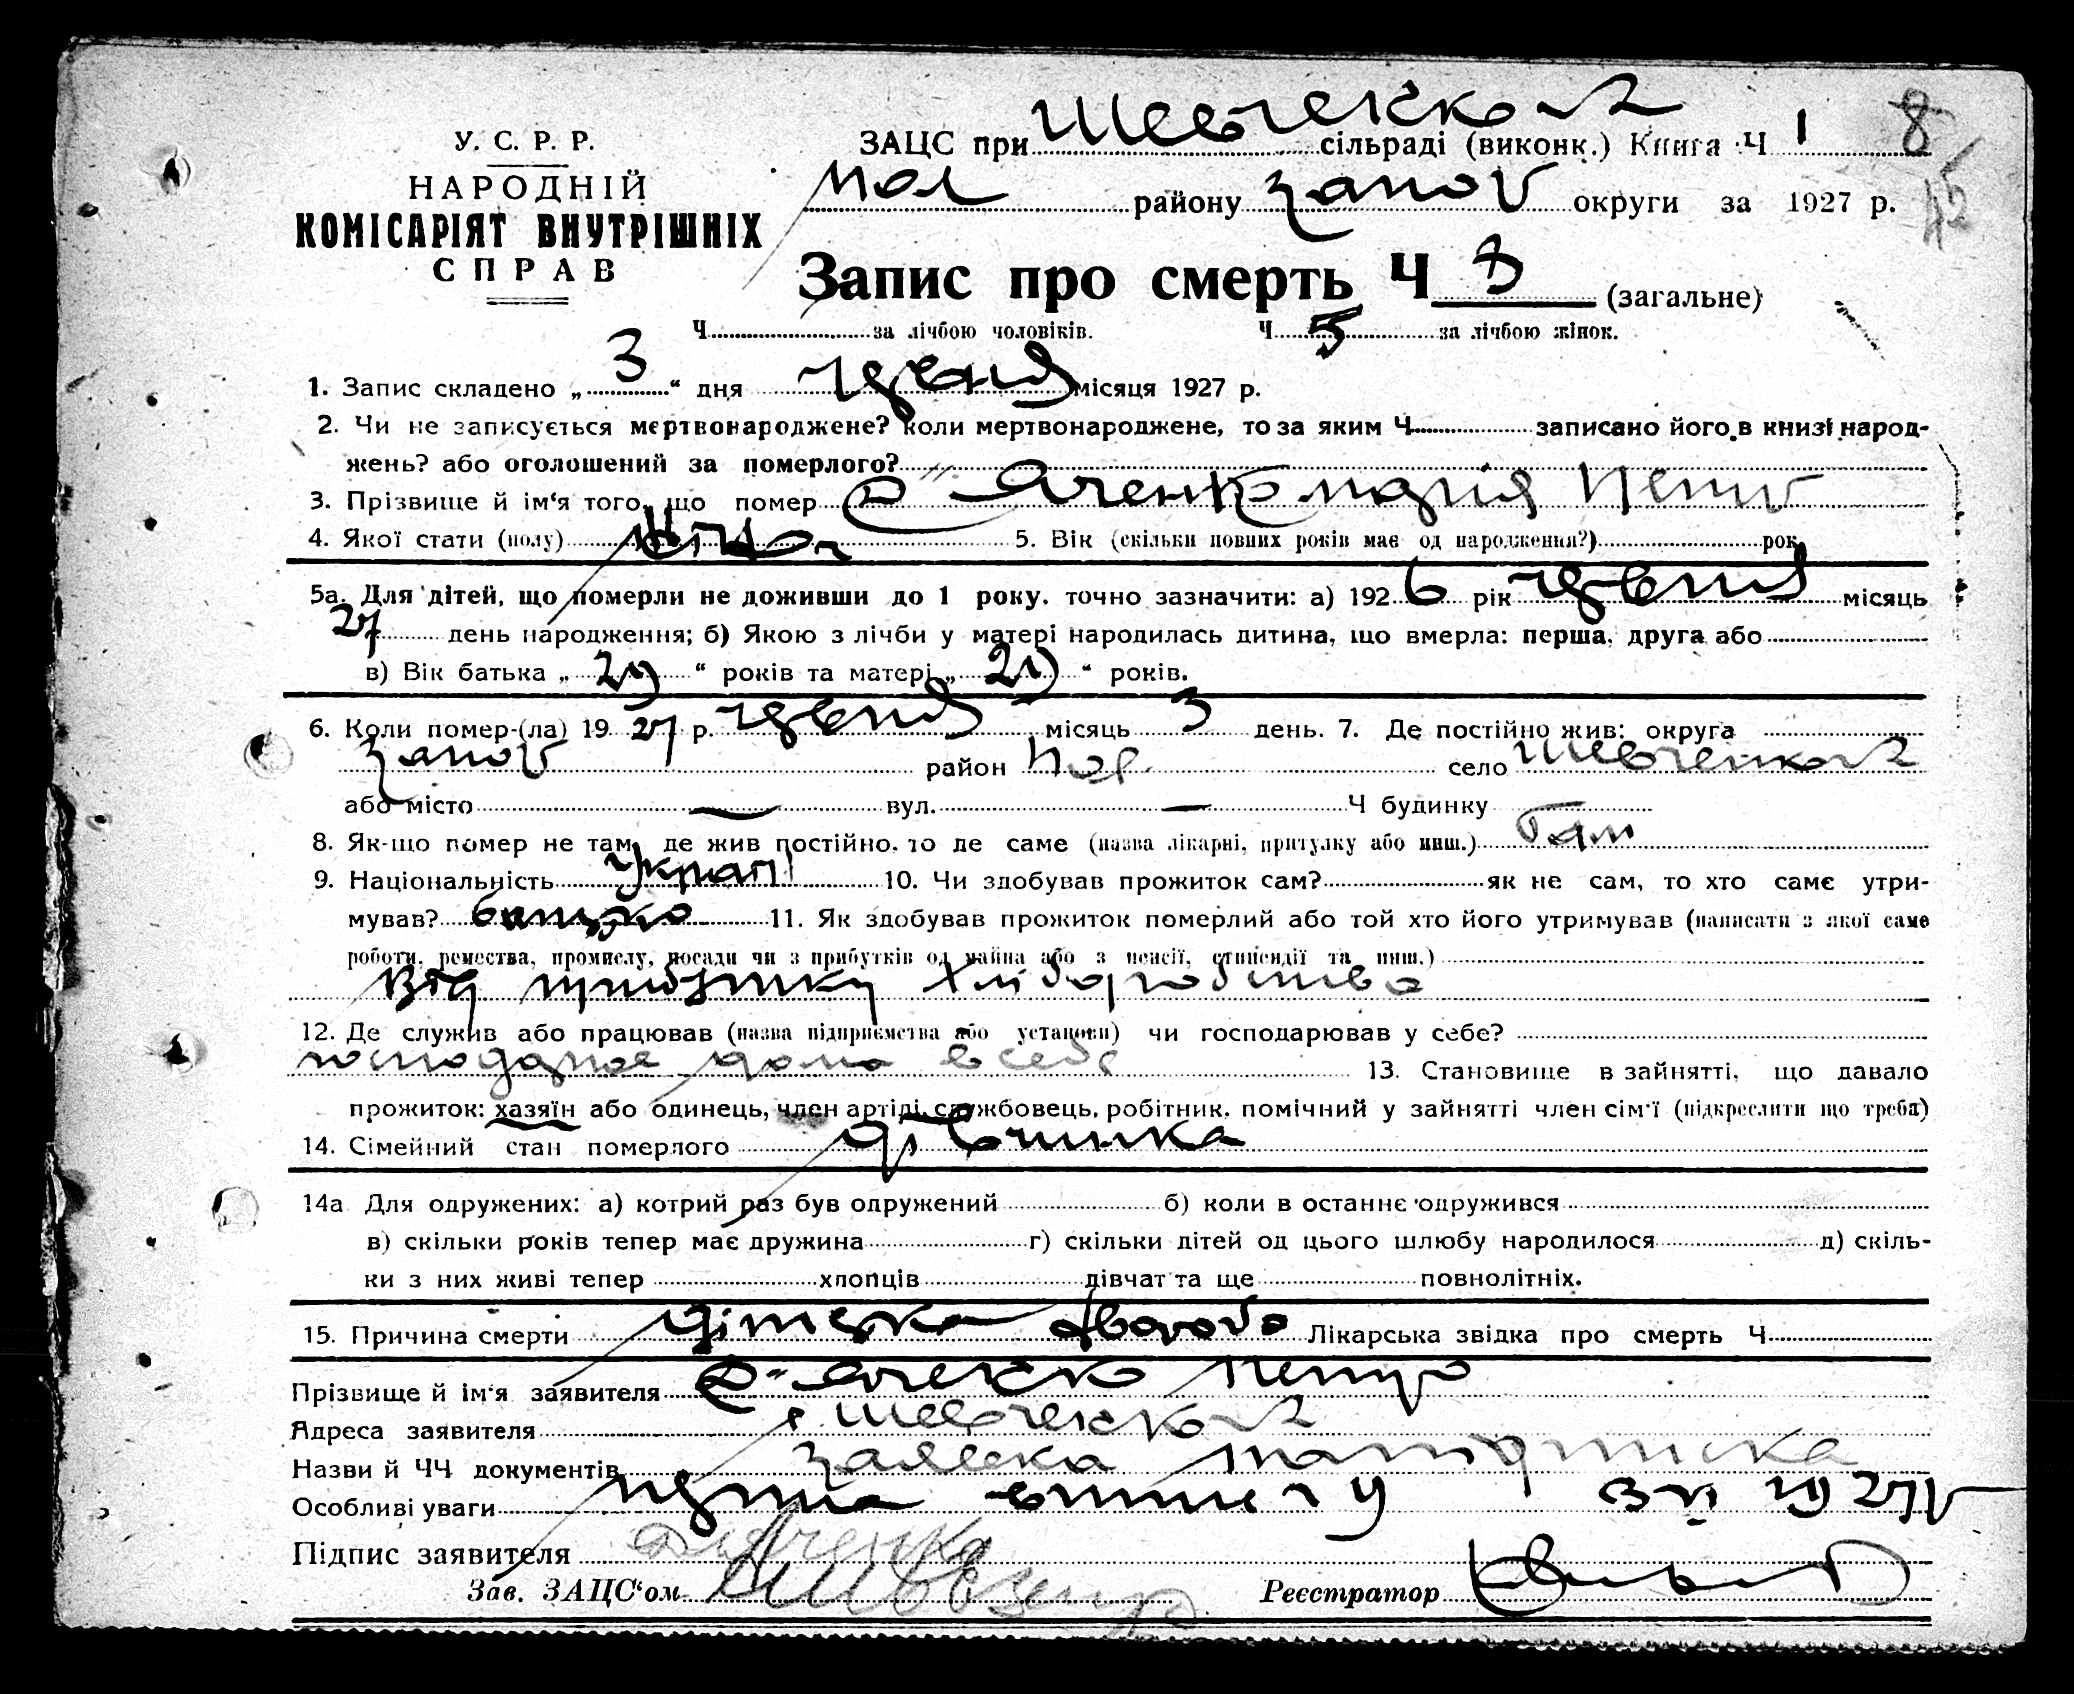 У. С. Р. Р.
НАРОДНІЙ
КОМІСАРІЯТ ВНУТРІШНІХ
СПРАВ
ЗАЦС при Шевченков сільраді (виконк.) Книга Ч 1 8
району Запоѵ округи за 1927 р.
Запис про смерть Ч 3 (загальне)
Ч за лічбою чоловіків. Ч 5 за лічбою жінок.
1. Запис складено „ 3 “ дня червня місяця 1927 р.
2. Чи не записується мертвонароджене? коли мертвонароджене, то за яким Ч записано його в книзі народ-
жень? або оголошений за померлого?
3. Прізвище й ім‘я того, що помер Д-яченко Марія Петр
4. Якої стати (полу) 5. Вік (скільки повних років має од народження?) рок.
5а. Для дітей, що померли не доживши до 1 року. точно зазначити: а) 192 6 рік червня місяць
27 день народження; б) Якою з лічби у матері народилась дитина, що вмерла: перша, друга або
в) Вік батька „ 29 “ років та матері „ 29 “ років.
6. Коли помер-(ла) 19 27 р. червня місяць 3 день. 7. Де постійно жив: округа
Запоѵ район село Шевченков
або місто — вул. — Ч будинку
8. Як-що помер не там, де жив постійно, то де саме (назва лікарні, притулку або инш.) Там
9. Національність Украп 10. Чи здобував прожиток сам? як не сам, то хто саме утри-
мував? батько 11. Як здобував прожиток померлий або той хто його утримував (написати з якої саме
роботи, ремества, промислу, посади чи з прибутків од майна або з пенсії, стипендії та инш.)
Від прибутку хліборобства
12. Де служив або працював (назва підприємства або установи) чи господарював у себе?
господарює дома в себе 13. Становище в зайнятті, що давало
прожиток: хазяїн або одинець, член артілі, службовець, робітник, помічний у зайнятті член сім‘ї (підкреслити що треба)
14. Сімейний стан померлого дівчинка
14а Для одружених: а) котрий раз був одружений б) коли в останнє одружився
в) скільки років тепер має дружина г) скільки дітей од цього шлюбу народилося д) скіль-
ки з них живі тепер хлопців дівчат та ще повнолітніх.
15. Причина смерти дітська хвороба Лікарська звідка про смерть Ч
Прізвище й ім‘я заявителя Д-яченко Петро
Адреса заявителя с Шевченков
Назви й ЧЧ документів заявська
Особливі уваги 3 VI 1927 р
Підпис заявителя Дьяченко
Зав. ЗАЦС‘ом Реєстратор